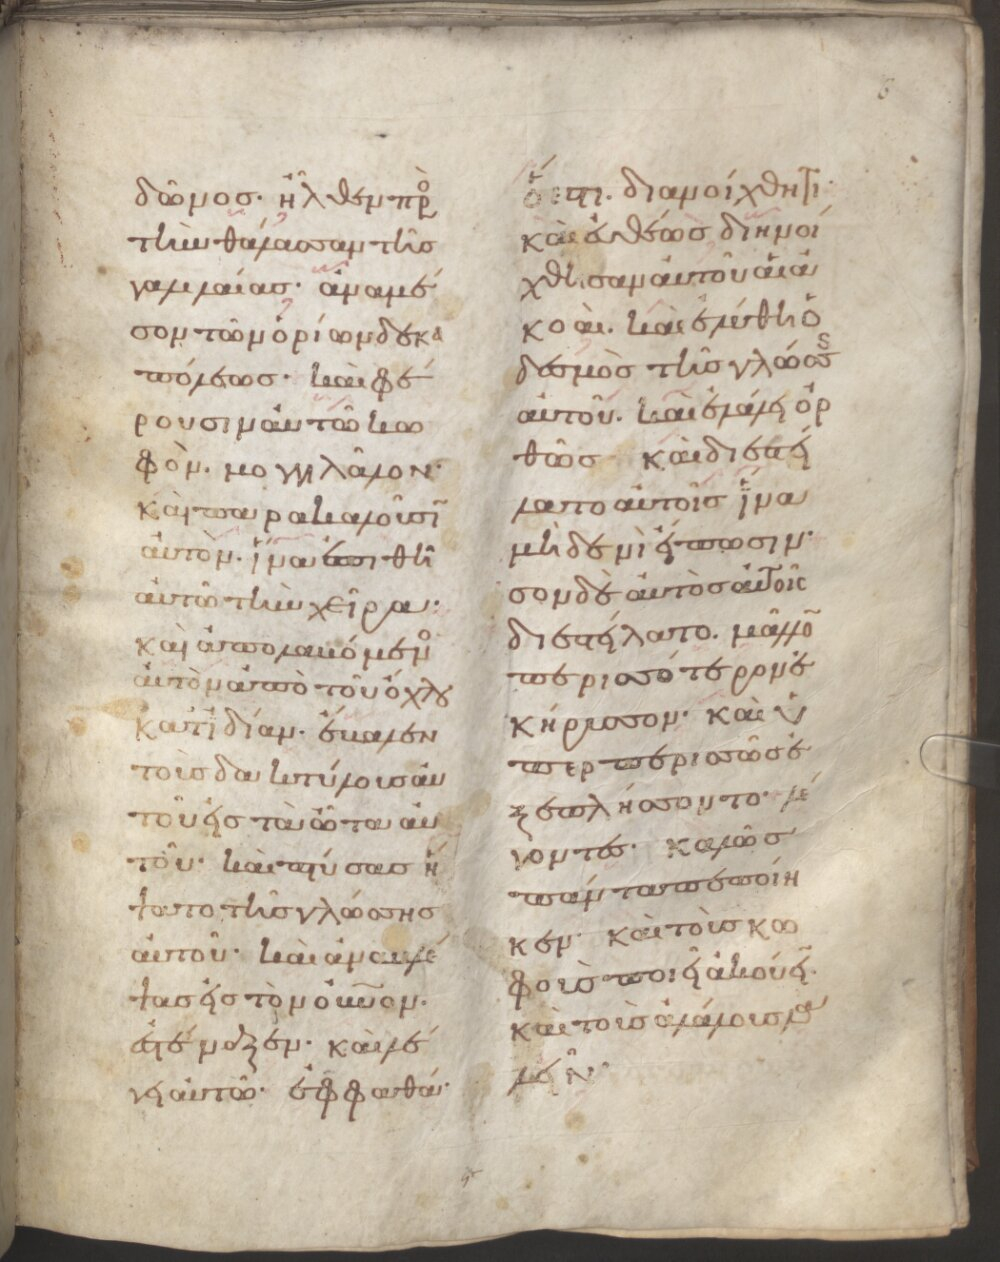 6
δῶνος· ἦλθεν πρὸ
τὴν θάλασσαν τῆς
γαλιλαίας· ἀναμέ
σον τῶν ὁρίων δεκα
πόλεως· καὶ φέ
ρουσιν αὐτῶ κω
φὸν. μογγιλάλον·
καὶ παρακαλοῦσῖ
αὐτὸν. ἵνα ἐπιθῆ
αὐτῶ τὴν χεῖρα·
καὶ ἀπολαβόμενο
αὐτὸν ἀπὸ τοῦ ὄχλου
κατἰδίαν. ἔβαλεν
τοὺς δακτύλους αὐ
τοῦ εἰς τὰ ὦτα αὐ
τοῦ· καὶ πτύσας ἥ
ψατο τῆς γλώσσης
αὐτοῦ· καὶ ἀναβλέ
ψας εἰς τὸν οὐνον·
ἐστέναξεν· καὶ λέ
γει αὐτῶ· ἐφφαθά·
ὅ ἐστι. διανοίχθητι·
καὶ εὐθέως διηνοί
χθησαν αὐτοῦ αἱ ἀ
κοαὶ. καὶ ἐλύθη ὁ
δεσμὸς τῆς γλώσσς
αὐτοῦ. καὶ ἐλάλει ὀρ
θῶς καὶ διεστεί
λατο αὐτοῖς ἵνα
μηδενὶ εἴπωσιν·
σον δὲ αὐτὸς αὐτοῖς
διεστείλατο. μᾶλλο
περισσότερον ἐ
κήρυσσον· καὶ ὑ
περπερισσῶς ἐ
ξεπλήσσοντο· λέ
γοντες· καλῶς
πάντα πεποίη
κεν· καὶ τοὺς κω
φοὺς ποιεῖ ἀκούειν·
καὶ τοὺς ἀλάλους λα
λεῖν·